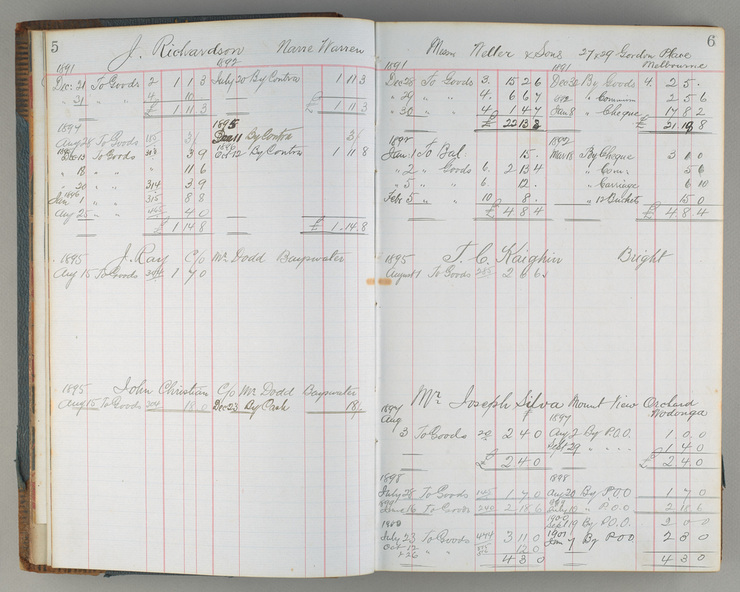 5
J. Richardson Narre Warren
1891 1892
Dec. 21 To Goods 2 1 1 3 July 20 By Contra 1 11 3
" 31 " " 4 10
£ 1 11 3 £ 1 11 3
1894 1895
Aug 28 To Goods 3/ Dec 11 By Contra 3/
1895 1896
Dec 13 To Goods 3 9 Oct 12 By Contra 1 11 8
" 18 " " 11 6
" 20 " " 314 3 9
1896
Jan 1 " " 315 8 8
Aug 25 " " 4 0
£ 1 14 8 £ 1 14 8
1895 J. Ray C/o Mr. Dodd Bayswater
Aug 15 To Goods 1 7 0
1895 John Christian C/o Mr Dodd Bayswater
Aug 15 To Goods 18 0 Dec 23 By Cash 18
6
Weller & Sons 27 & 29 Gordon Place
Melbourne
1891 1891
Dec 28 To Goods 3. 15 2 6 Dec 30 By Goods 4. 2 5
" 29 " " 4. 6 6 7 " 2 5 6
" 30 " " 4. Jan 8 " Cheque 8 2
£ 22 13 8 £
1892 1892
Jan 1 To Bal. 15 Mar 18 By Cheque 3 1 0
" 2 " Goods 6. 2 13 4 " Com. 5 6
" 5 " " 6. 12 " Carriage 6 10
Feb 5 " " 10 8 " 12 Buckets 15 0
£ 4 8 4 £ 4 8 4
1895 T. C. Kaighin Bright
August 1 To Goods 285 2 6 6
Mr. Joseph Silva Mount View Orchard
Wodonga
1897 1897
Aug 3 To Goods 20 2 4 0 Aug 2 By P.O.O. 1 0 0
Sept 29 " " 1 4 0
£ 2 4 0 £ 2 4 0
1898 1898
July 28 To Goods 1 7 0 Aug 20 By P.O.O 1 7 0
June 16 To Goods 240 2 18 6 July 10 " P.O.O 2 18 6
1900 1900
Sept 19 By P.O.O. 2 0 0
July 23 To Goods 474 3 11 0 1901 Jan 7 By P.O.O 2 3 0
Oct 12 " " 12 0
" 26
4 3 0 4 3 0